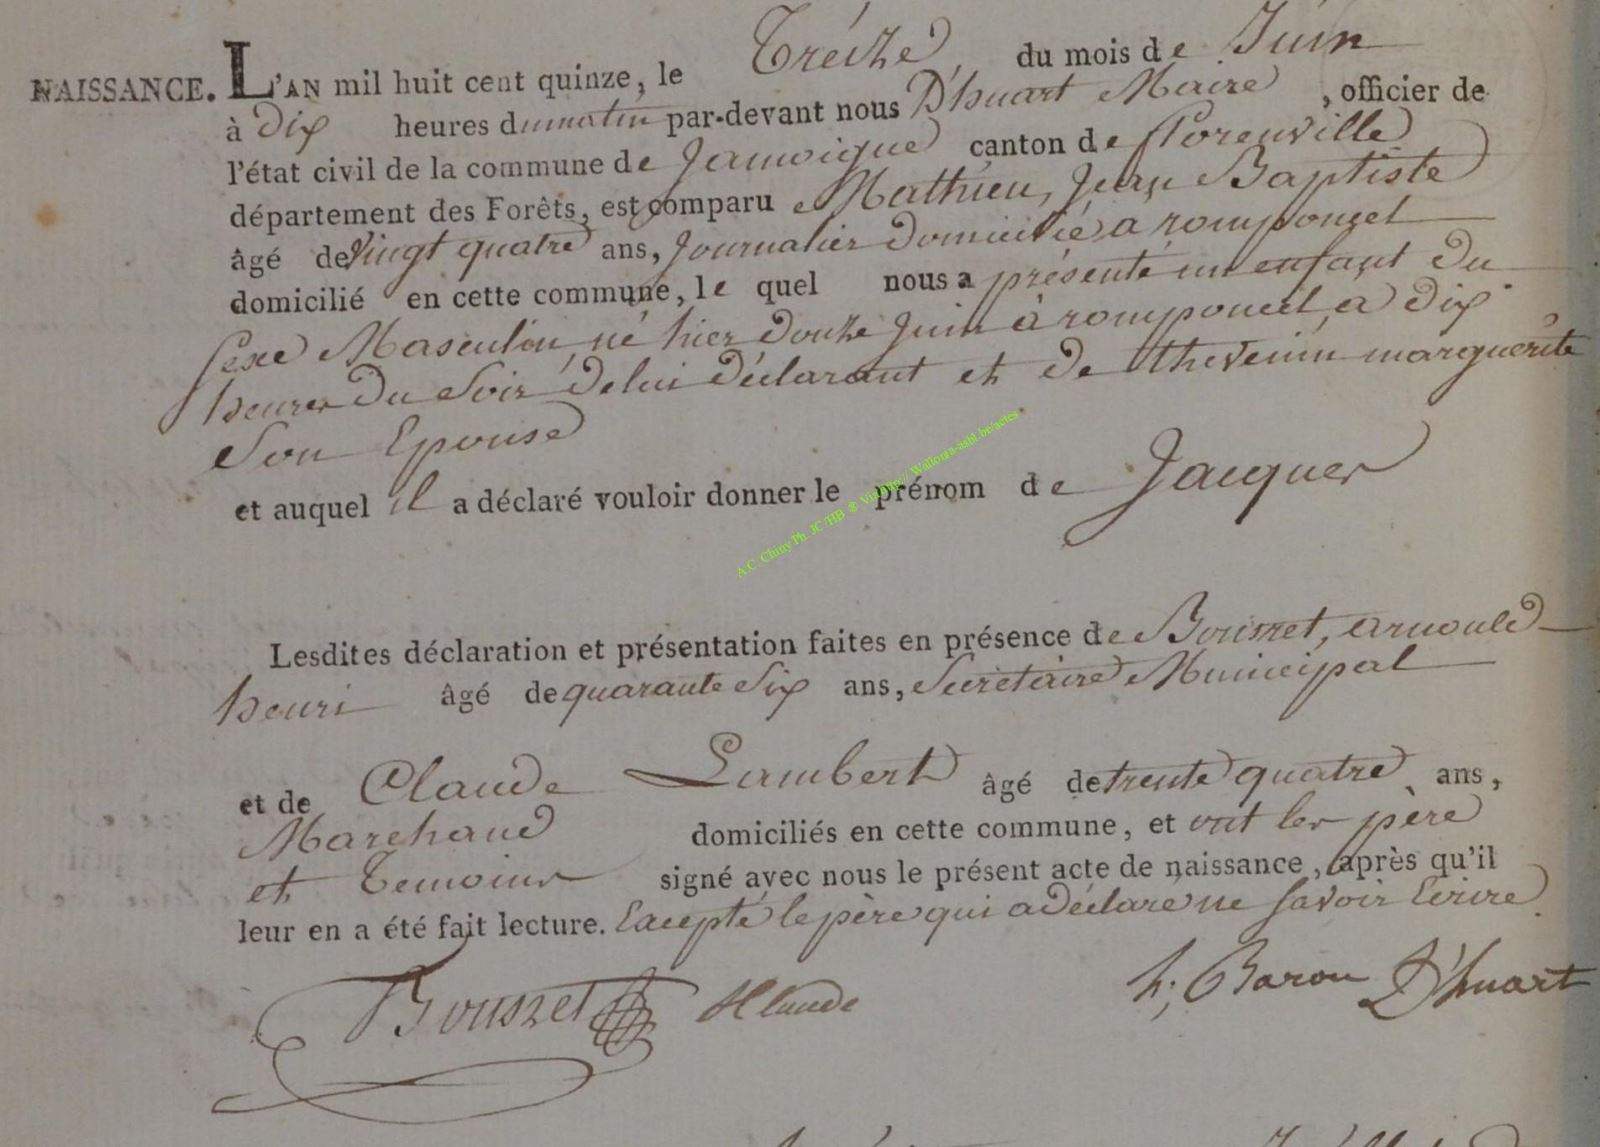 NAISSANCE. L'AN mil huit cent quinze, le Tréize du mois de Juin
à Dix heures du matin par-devant nous D'huart Maire, officier de
l'état civil de la commune de Jamoigne canton de florenville
département des Forêts, est comparu Mathieu, Jean Baptiste
âgé de vingt quatre ans, journalier domicilié a romponcel
domicilié en cette commune, le quel nous a présenté un enfant du
sexe Masculin, né hier douze Juin à romponcel a dix
heures du Soir de lui déclarant et de thevenin marguerite
Son Epouse
et auquel il a déclaré vouloir donner le prénom de Jacques
A.C. Chiny Ph. JC/HB ® Via http:// Wallonia-asbl.be/actes
Lesdites déclaration et présentation faites en présence de Bouszet, arnould
henri âgé de quarante Six ans, Secretaire Municipal
et de Claude Lambert âgé de trente quatre ans,
Marchand domiciliés en cette commune, et ont les père
et Temoins signé avec nous le présent acte de naissance, après qu'il
leur en a été fait lecture. Excepté le père qui a déclaré ne Savoir Ecrire
Bouszet Claude h; Baron D'huart